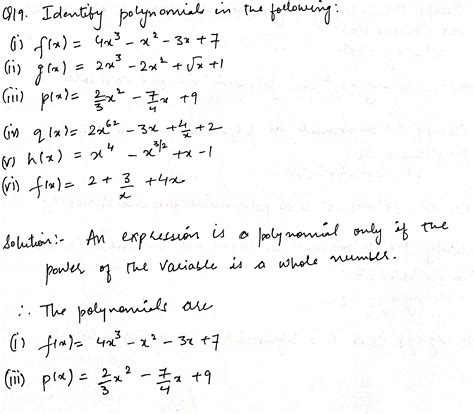 Q19. Identify polynomials in the following:
(i) f(x) = 4x³ - x² - 3x + 7
(ii) g(x) = 2x³ - 2x² + √x + 1
(iii) p(x) = 2/3 x² - 7/4 x + 9
(iv) q(x) = 2x⁶² - 3x + 4/x + 2
(v) h(x) = x⁴ - x^3/2 + x - 1
(vi) f(x) = 2 + 3/x + 4x
Solution:- An expression is a polynomial only if the
power of the variable is a whole number.
∴ The polynomials are
(i) f(x) = 4x³ - x² - 3x + 7
(iii) p(x) = 2/3 x² - 7/4 x + 9